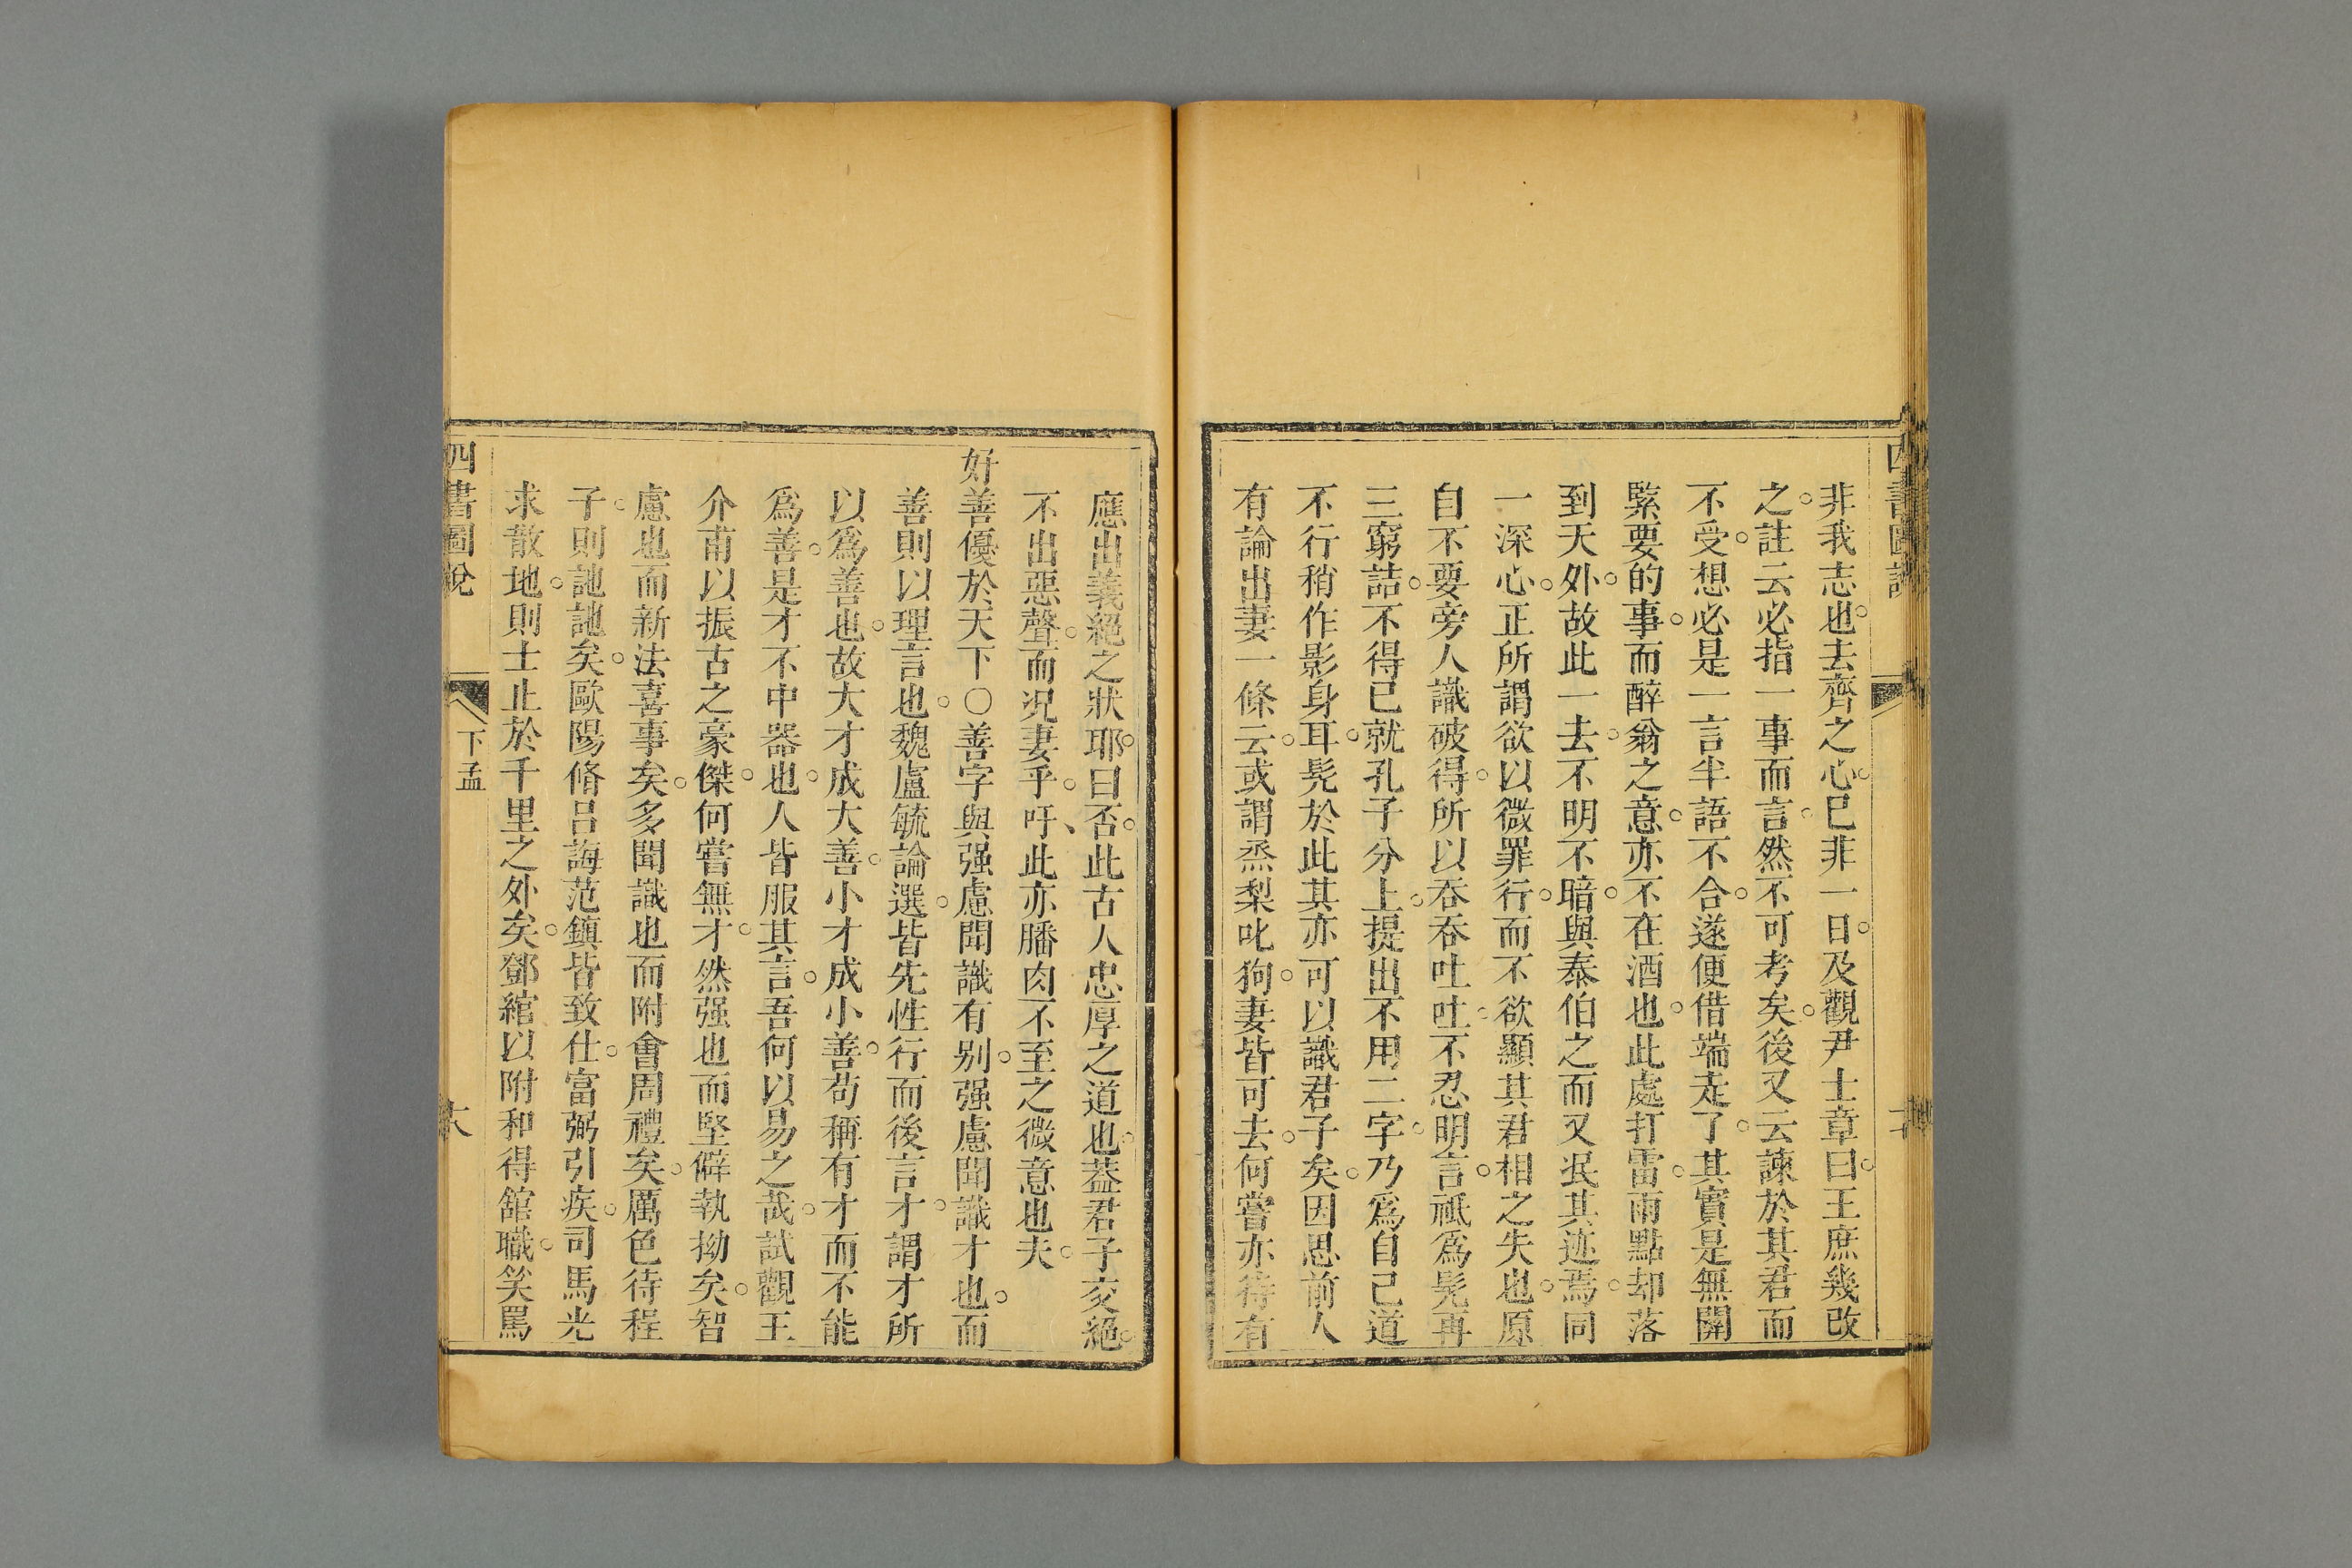 四書圖說
非我志也。去齊之心。已非一日。及觀尹士章曰。王庶幾改
之。註云必指一事而言。然不可考矣。後又云諫於其君而
不受。想必是一言半語不合。遂便借端走了。其實是無關
緊要的事。而醉翁之意。亦不在酒也。此處打雷。雨點却落
到天外。故此一去。不明不暗。與泰伯之而又泯其迹焉。同
一深心。正所謂欲以微罪行。而不欲顯其君相之失也。原
自不要旁人識破得。所以吞吞吐吐。不忍明言。祗為髡再
三窮詰。不得已就孔子分上。提出不用二字。乃為自己道
不行稍作影身耳。髡於此其亦可以識君子矣。因思前人
有論出妻一條云。或謂烝梨叱狗。妻皆可去。何嘗亦待有
應出義絕之狀耶。曰否。此古人忠厚之道也。葢君子交絕。
不出惡聲。而況妻乎。吁、此亦膰肉不至之微意也夫。
好善優於天下○善字與强慮聞識有別。强慮聞識才也。而
善則以理言也。魏盧毓論選。皆先性行而後言才。謂才所
以為善也。故大才成大善。小才成小善。苟稱有才而不能
為善。是才不中器也。人皆服其言。吾何以易之哉。試觀王
介甫以振古之豪傑。何嘗無才。然强也而堅僻執拗矣。智
慮也而新法喜事矣。多聞識也而附會周禮矣。厲色待程
子。則訑訑矣。歐陽脩呂誨范鎮皆致仕。富弼引疾。司馬光
求散地。則士止於千里之外矣。鄧綰以附和得舘職。笑罵
四書圖說
下孟